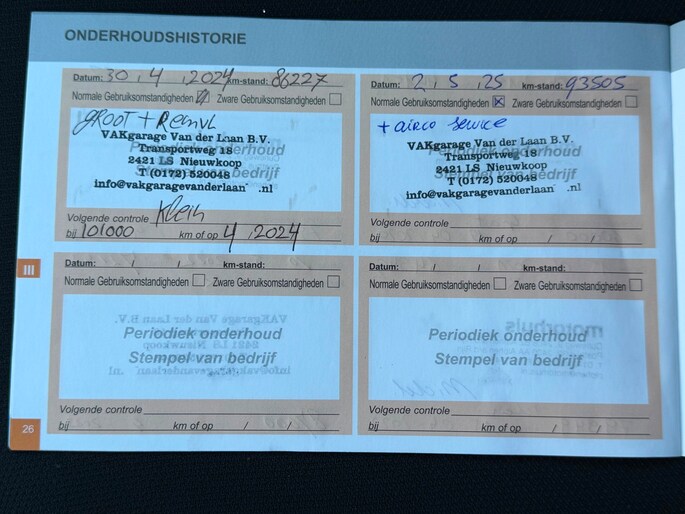 ONDERHOUDSHISTORIE
Datum: 30 , 4 , 2024 km-stand: 86227
Normale Gebruiksomstandigheden Zware Gebruiksomstandigheden
GROOT + Remvl
VAKgarage Van der Laan B.V.
Periodiek onderhoud
Transportweg 18
2421 LS Nieuwkoop
Stempel van bedrijf
T (0172) 520048
info@vakgaragevanderlaan .nl
Volgende controle Klein
bij 101000 km of op 4 , 2024
Datum: 2 , 5 , 25 km-stand: 93505
Normale Gebruiksomstandigheden Zware Gebruiksomstandigheden
+ airco service
VAKgarage Van der Laan B.V.
Periodiek onderhoud
Transportweg 18
2421 LS Nieuwkoop
Stempel van bedrijf
T (0172) 520048
info@vakgaragevanderlaan .nl
Volgende controle
bij km of op / /
III
Datum: / / km-stand:
Normale Gebruiksomstandigheden Zware Gebruiksomstandigheden
Periodiek onderhoud
Stempel van bedrijf
Volgende controle
bij km of op / /
Datum: / / km-stand:
Normale Gebruiksomstandigheden Zware Gebruiksomstandigheden
Periodiek onderhoud
Stempel van bedrijf
Volgende controle
bij km of op / /
26